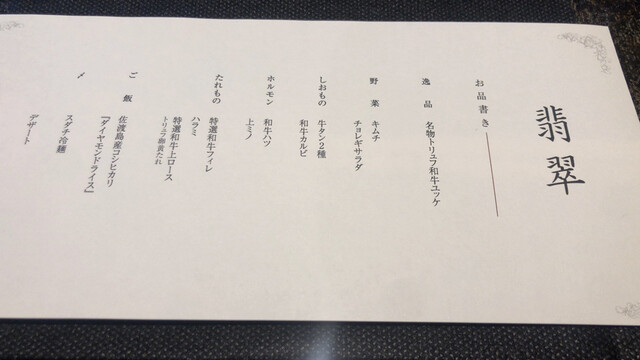 翡翠
お品書き
逸品 名物トリュフ和牛ユッケ
野菜 キムチ
チョレギサラダ
しおもの 牛タン2種
和牛カルビ
ホルモン 和牛ハツ
上ミノ
たれもの 特選和牛フィレ
ハラミ
特選和牛上ロース
トリュフ卵黄たれ
ご飯 佐渡島産コシヒカリ
『ダイヤモンドライス』
〆 スダチ冷麺
デザート